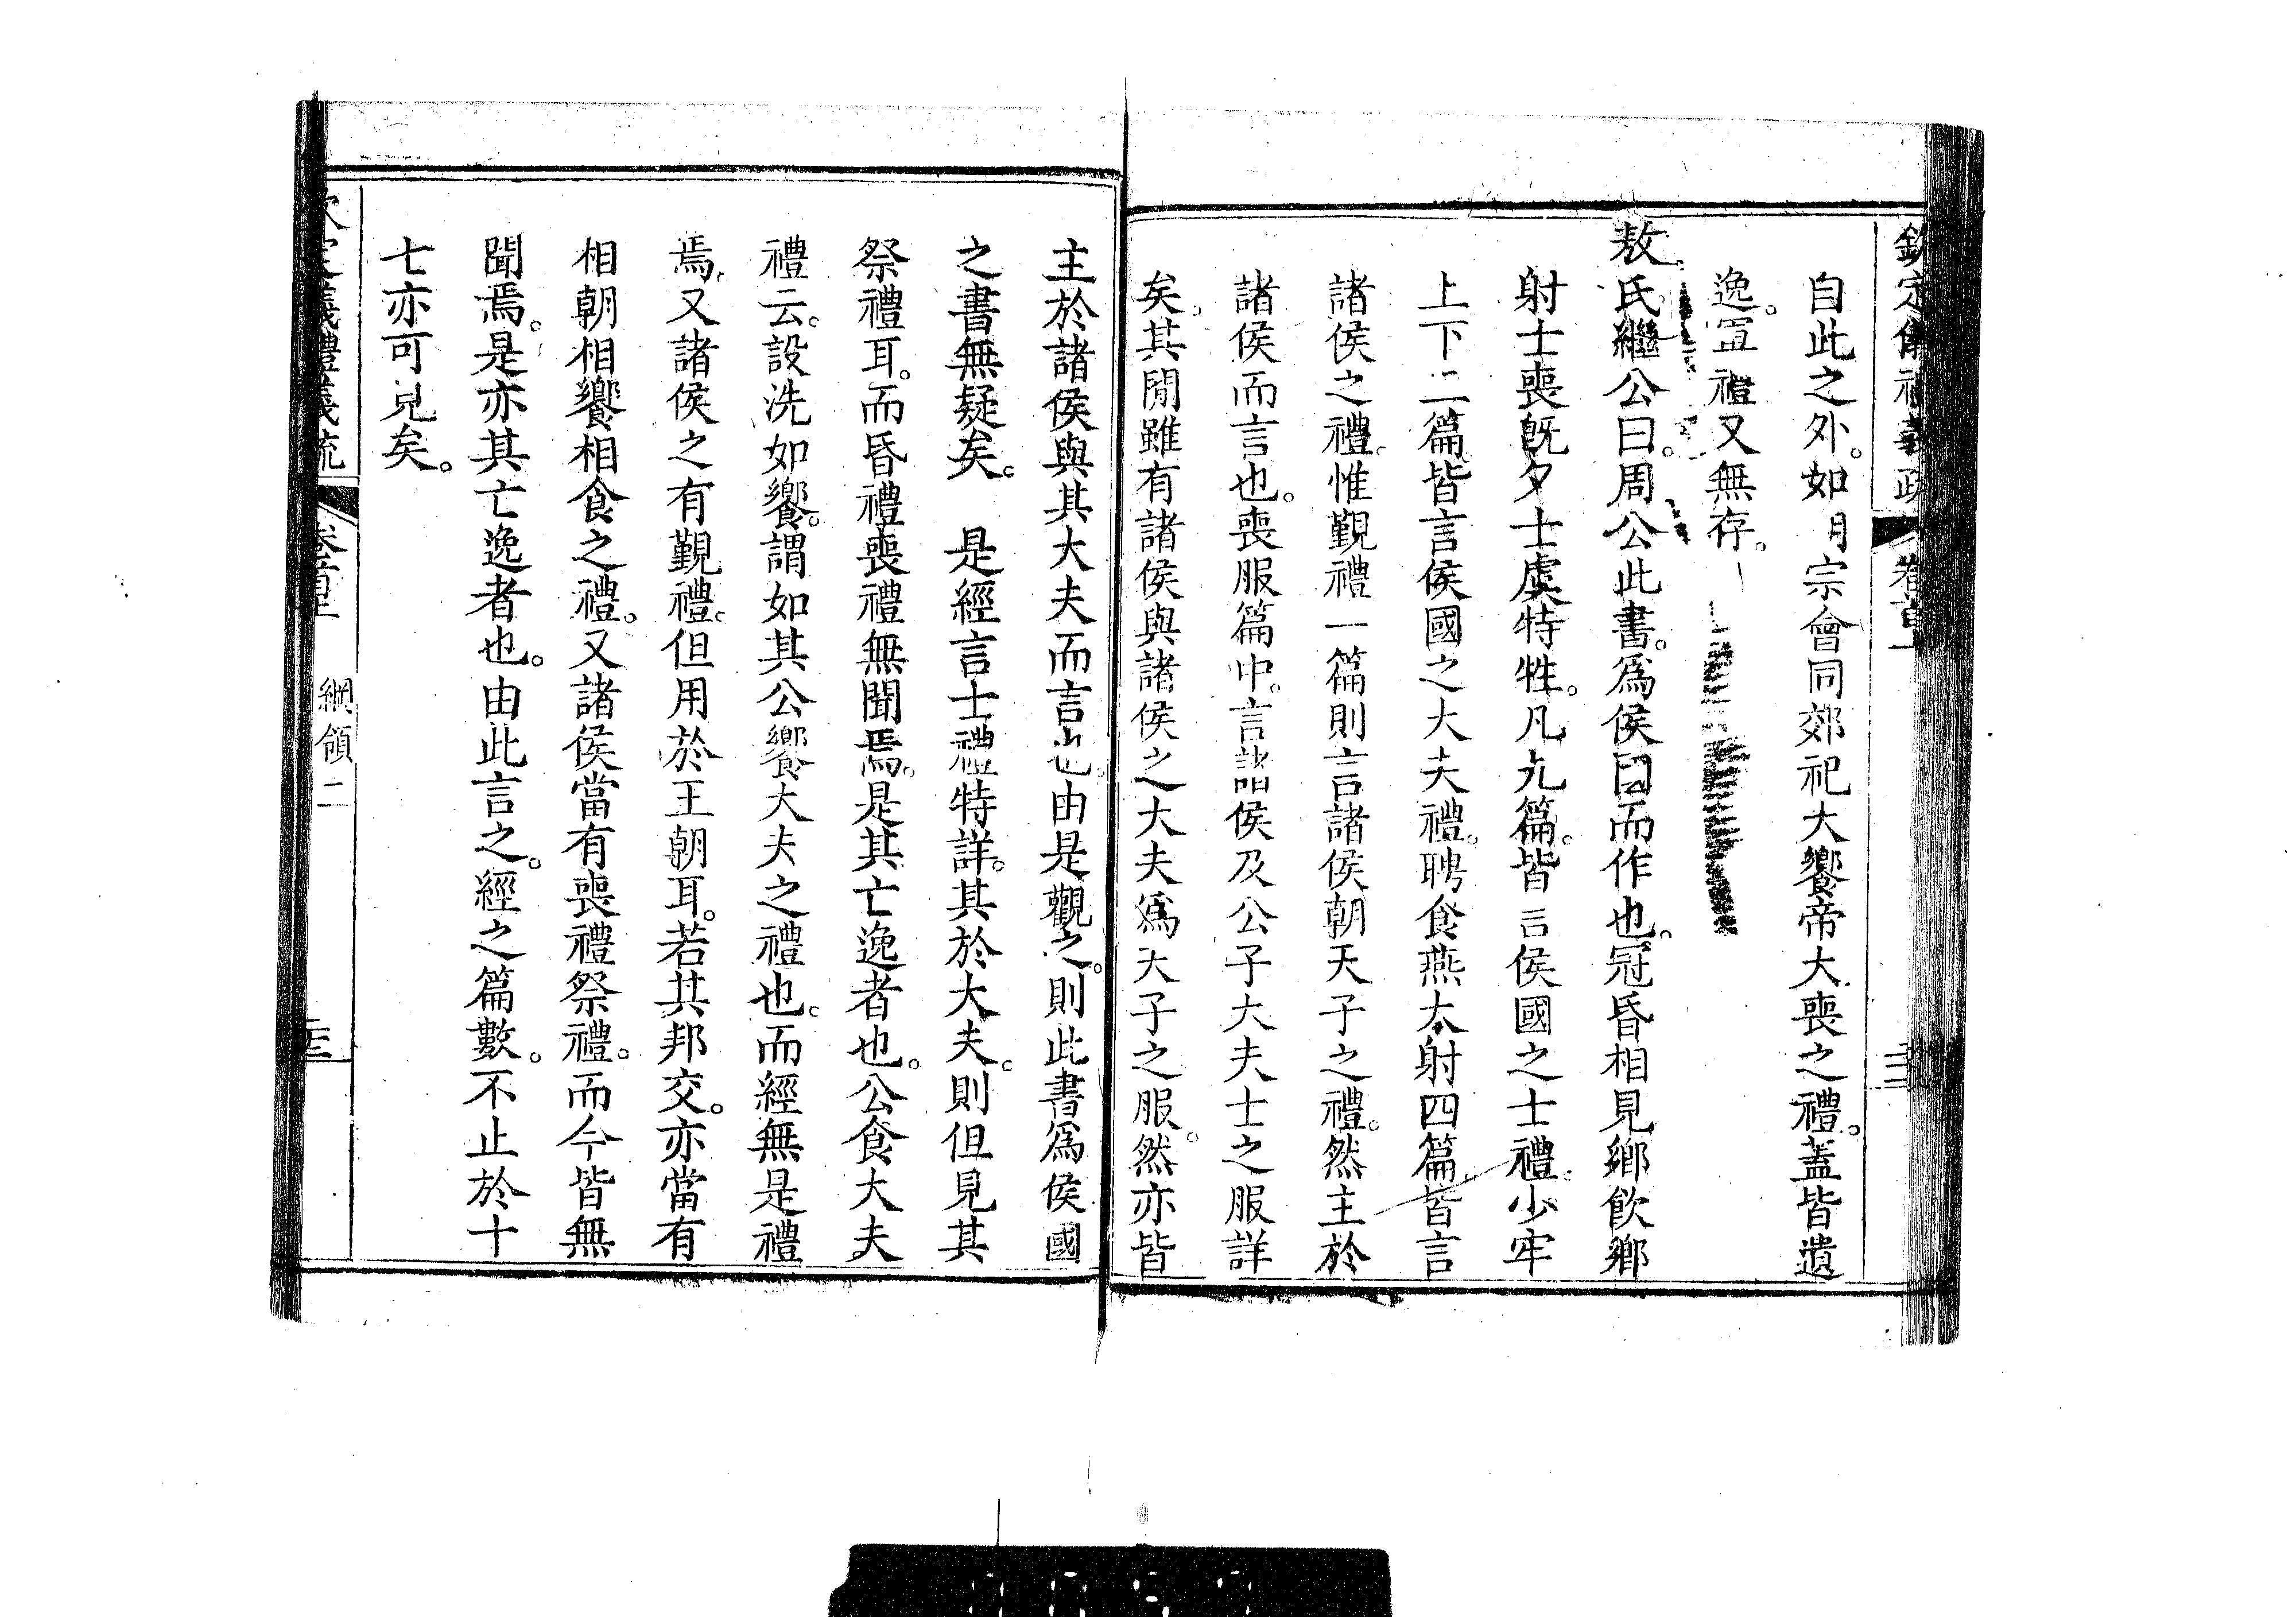 欽定儀禮義疏 卷首上
自此之外。如朝宗會同郊祀大饗帝大喪之禮。蓋皆遺
逸。軍禮又無存。
敖氏繼公曰。周公此書。爲侯國而作也。冠昏相見鄉飮鄉
射士喪旣夕士虞特牲。凡九篇。皆言侯國之士禮。少牢
上下二篇。皆言侯國之大夫禮。聘食燕大射四篇。皆言
諸侯之禮。惟覲禮一篇則言諸侯朝天子之禮。然主於
諸侯而言也。喪服篇中。言諸侯及公子大夫士之服詳
矣。其閒雖有諸侯與諸侯之大夫爲天子之服。然亦皆
主於諸侯與其大夫而言也。由是觀之。則此書爲侯國
之書無疑矣。 是經言士禮特詳。其於大夫。則但見其
祭禮耳。而昏禮喪禮無聞焉。是其亡逸者也。公食大夫
禮云。設洗如饗。謂如其公饗大夫之禮也。而經無是禮
焉。又諸侯之有覲禮。但用於王朝耳。若其邦交。亦當有
相朝相饗相食之禮。又諸侯當有喪禮祭禮。而今皆無
聞焉。是亦其亡逸者也。由此言之。經之篇數。不止於十
七亦可見矣。
欽定儀禮義疏 卷首上 綱領二